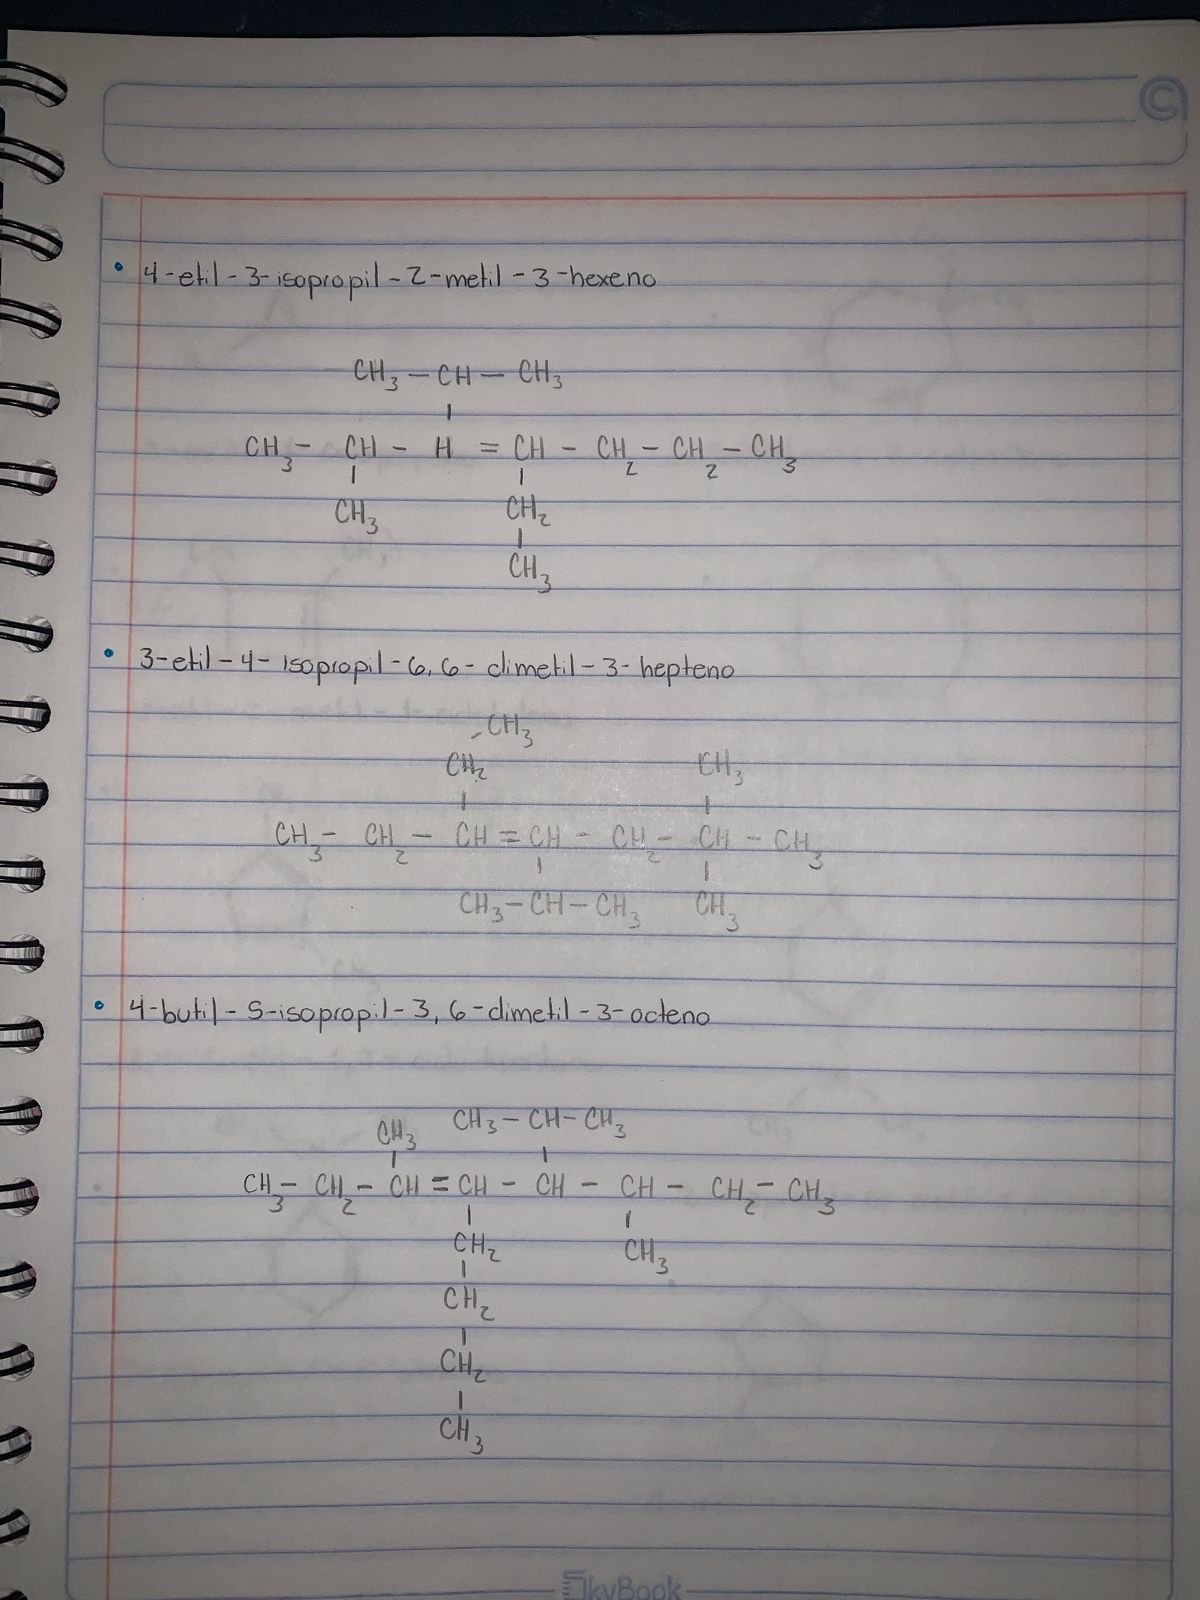 • 4-etil-3-isopropil-2-metil-3-hexeno
CH3 — CH — CH3
CH3 — CH — H = CH — CH2 — CH2 — CH3
CH3 CH2
CH3
• 3-etil-4-isopropil-6,6-dimetil-3-hepteno
CH3
CH2 CH3
CH3 — CH2 — CH = CH — CH2 — CH — CH3
CH3 — CH — CH3 CH3
• 4-butil-5-isopropil-3,6-dimetil-3-octeno
CH3 CH3 — CH — CH3
CH3 — CH2 — CH = CH — CH — CH — CH2 — CH3
CH2 CH3
CH2
CH2
CH3
SkyBook